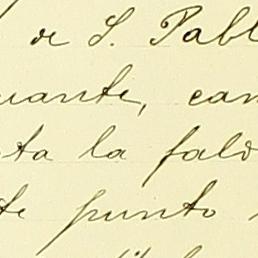 de S. Pabl
uante, cam
ta la fald
te punto